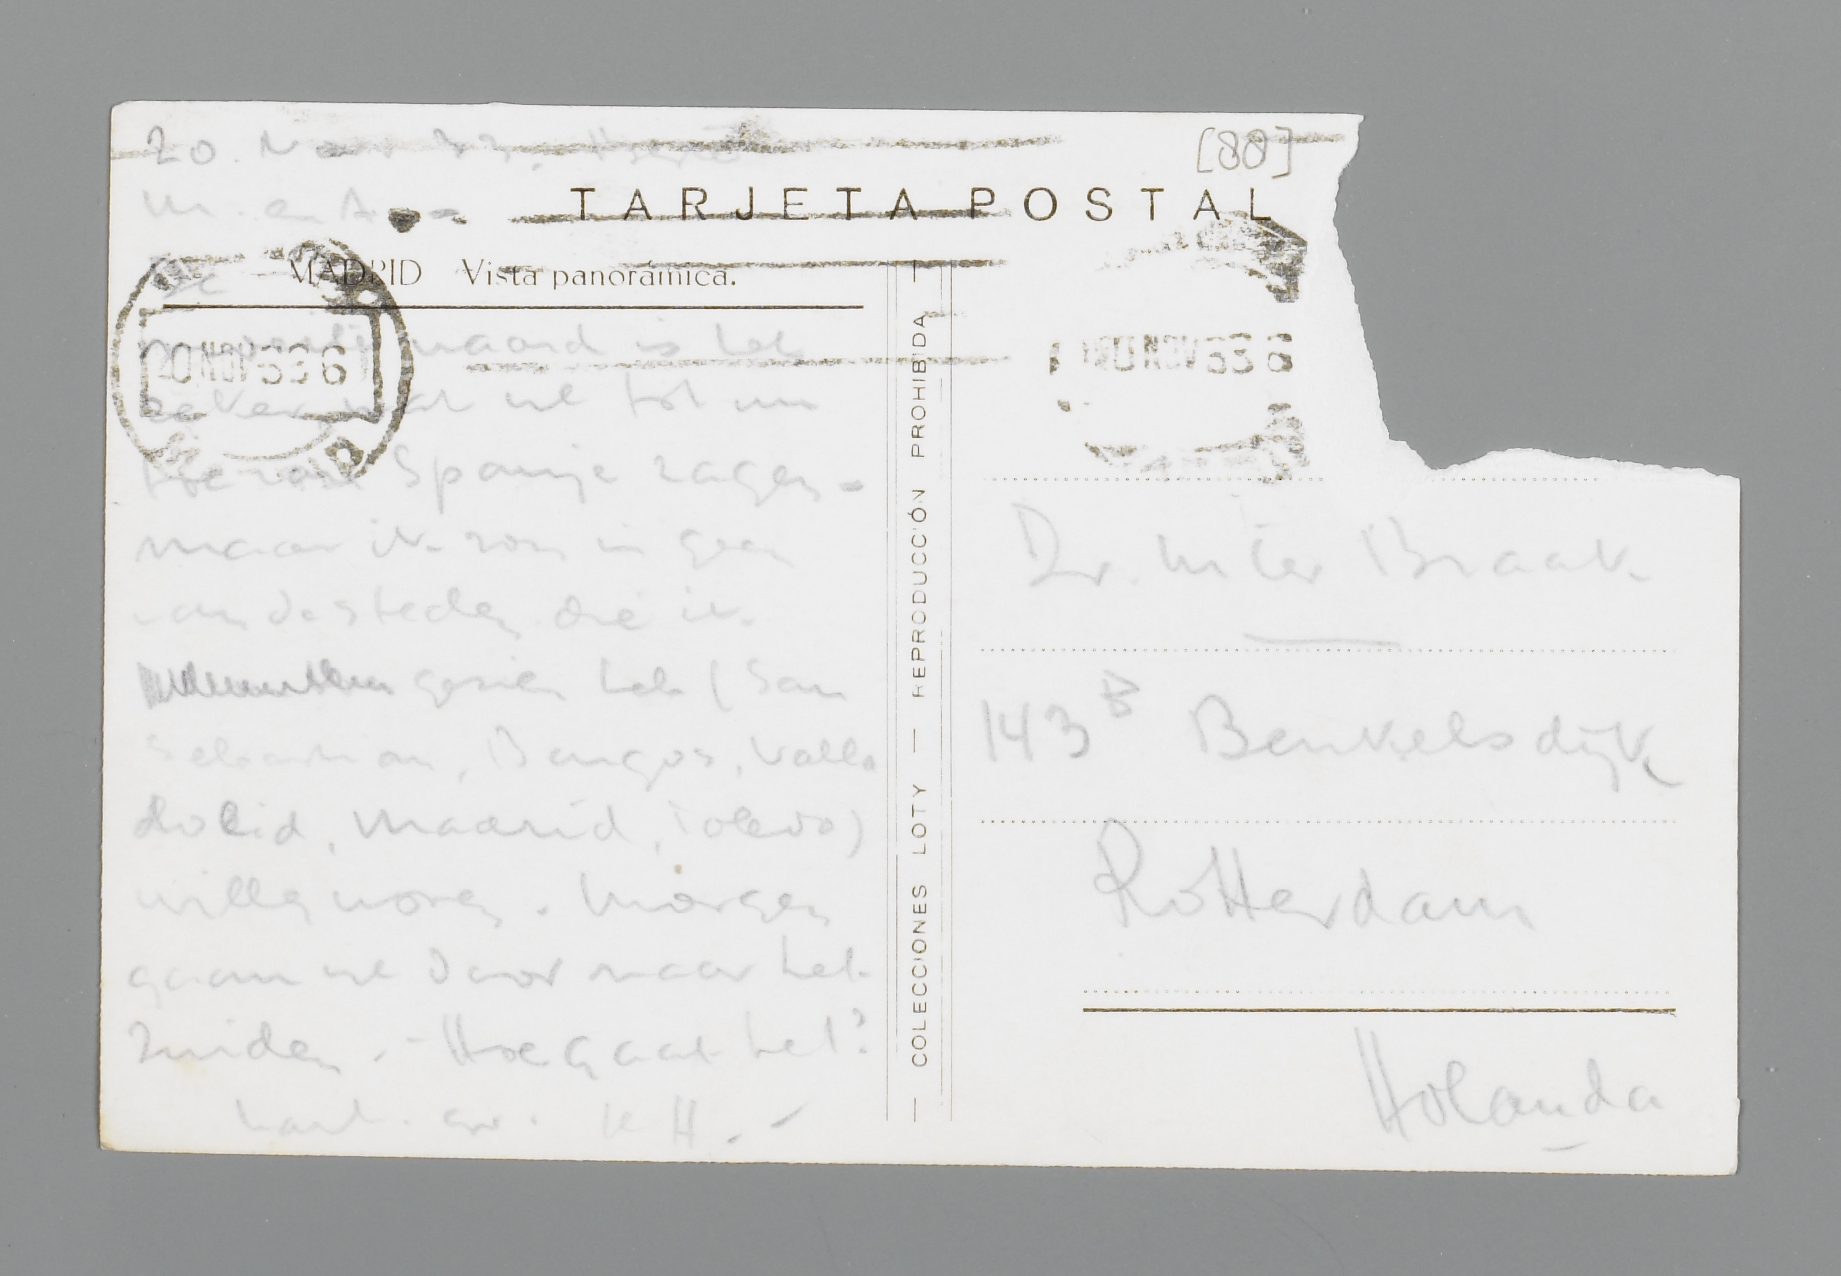 20 Nov 33.
[88]
M. en A.
TARJETA POSTAL
MADRID Vista panorámica.
20 NOV 33 6
20 NOV 33 6
maand is het
zeker wat we tot nu
toe van Spanje zagen -
maar ik zou in geen
van de steden die ik
gezien heb (San
Sebastian, Burgos, Valla
dolid, Madrid, Toledo)
willen wonen. Morgen
gaan we door naar het
Zuiden. - Hoe gaat het?
hart. gr. H. -
— COLECCIONES LOTY — REPRODUCCIÓN PROHIBIDA —
Dr. M. ter Braak
143 B Beukelsdijk
Rotterdam
Holanda